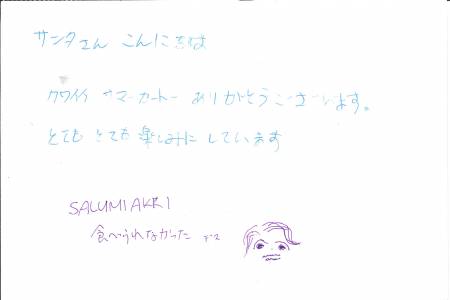 サンタさん こんにちは
カワイイ サマーカードー ありがとうございます。
とても とても 楽しみに しています
SALUMIAKRI
食べられなかった